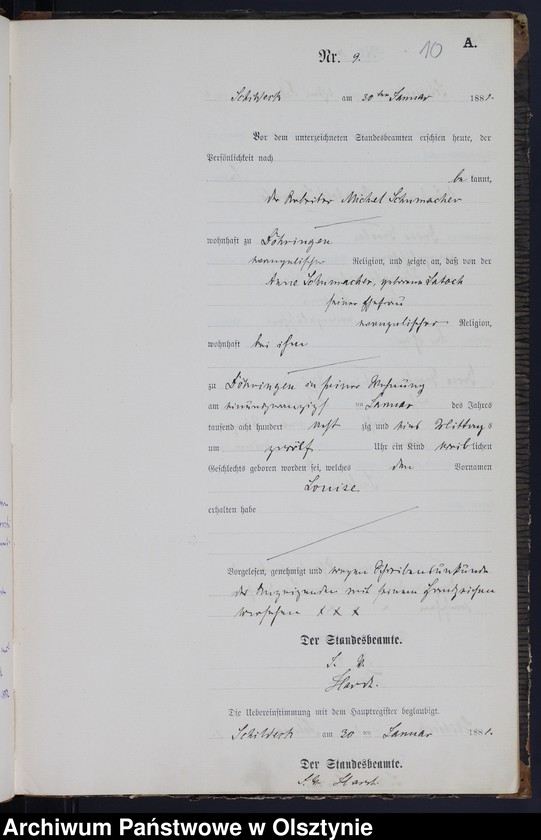 10 A.
Nr. 9.
Schildeck am 30 ten Januar 1881.
Vor dem unterzeichneten Standesbeamten erschien heute, der
Persönlichkeit nach
be kannt,
der Arbeiter Michael Schumacher
wohnhaft zu Döhringen
evangelischer Religion, und zeigte an, daß von der
Anna Schumacher, geborene Latoch
seiner Ehefrau
evangelischer Religion,
wohnhaft bei ihm
zu Döhringen in seiner Wohnung
am einundzwanzigst en Januar des Jahres
tausend acht hundert acht zig und eins Mittags
um zwölf Uhr ein Kind weib lichen
Geschlechts geboren worden sei, welches den Vornamen
Louise
erhalten habe
Vorgelesen, genehmigt und wegen Schreibensunkunde
des Anzeigenden mit seinem Handzeichen
versehen x x x
Der Standesbeamte.
Hardt.
Die Uebereinstimmung mit dem Hauptregister beglaubigt.
Schildeck am 30 Januar 1881.
Der Standesbeamte.
Hardt
Archiwum Państwowe w Olsztynie